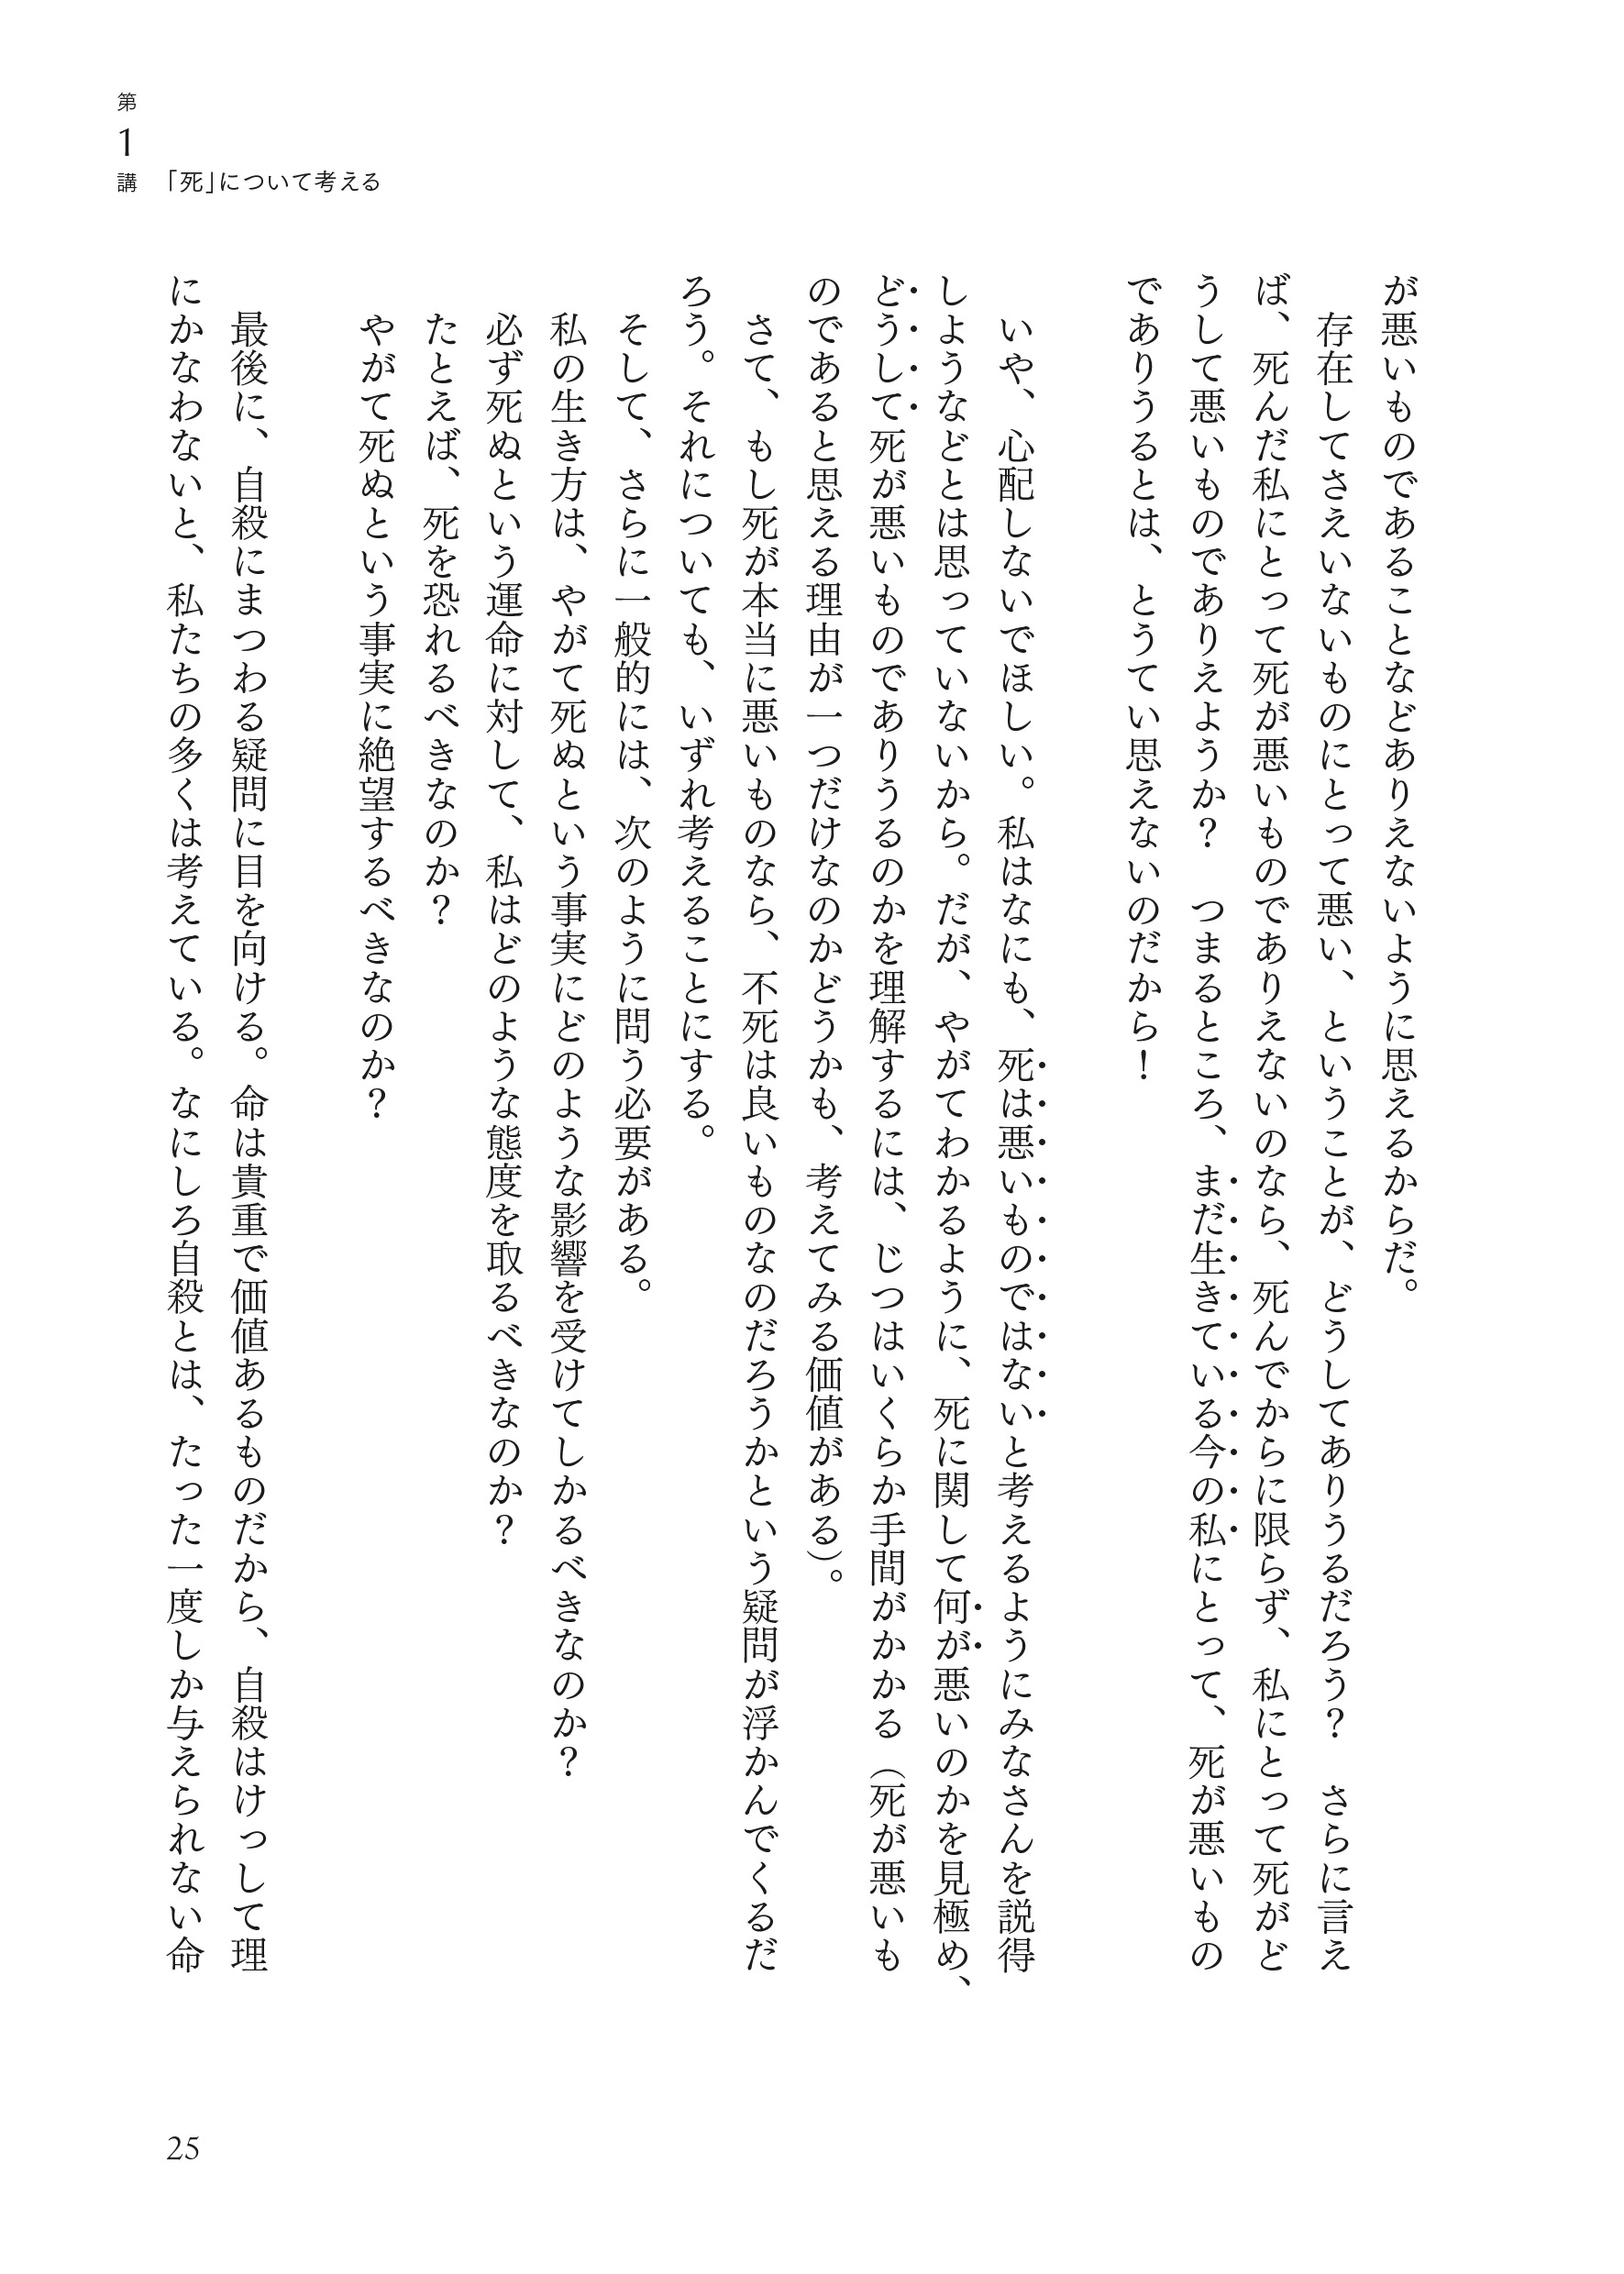 第1講 「死」について考える
が悪いものであることなどありえないように思えるからだ。
存在してさえいないものにとって悪い、ということが、どうしてありうるだろう？　さらに言え
ば、死んだ私にとって死が悪いものでありえないのなら、死んでからに限らず、私にとって死がど
うして悪いものでありえようか？　つまるところ、まだ生きている今の私にとって、死が悪いもの
でありうるとは、とうてい思えないのだから！
いや、心配しないでほしい。私はなにも、死は悪いものではないと考えるようにみなさんを説得
しようなどとは思っていないから。だが、やがてわかるように、死に関して何が悪いのかを見極め、
どうして死が悪いものでありうるのかを理解するには、じつはいくらか手間がかかる（死が悪いも
のであると思える理由が一つだけなのかどうかも、考えてみる価値がある）。
さて、もし死が本当に悪いものなら、不死は良いものなのだろうかという疑問が浮かんでくるだ
ろう。それについても、いずれ考えることにする。
そして、さらに一般的には、次のように問う必要がある。
私の生き方は、やがて死ぬという事実にどのような影響を受けてしかるべきなのか？
必ず死ぬという運命に対して、私はどのような態度を取るべきなのか？
たとえば、死を恐れるべきなのか？
やがて死ぬという事実に絶望するべきなのか？
最後に、自殺にまつわる疑問に目を向ける。命は貴重で価値あるものだから、自殺はけっして理
にかなわないと、私たちの多くは考えている。なにしろ自殺とは、たった一度しか与えられない命
25